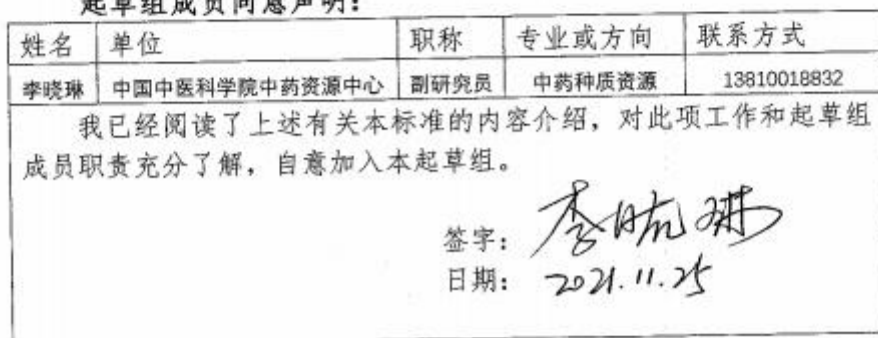 起草组成员同意声明：
姓名 单位 职称 专业或方向 联系方式
李晓琳 中国中医科学院中药资源中心 副研究员 中药种质资源 13810018832
我已经阅读了上述有关本标准的内容介绍，对此项工作和起草组
成员职责充分了解，自意加入本起草组。
签字：李晓琳
日期：2021.11.25